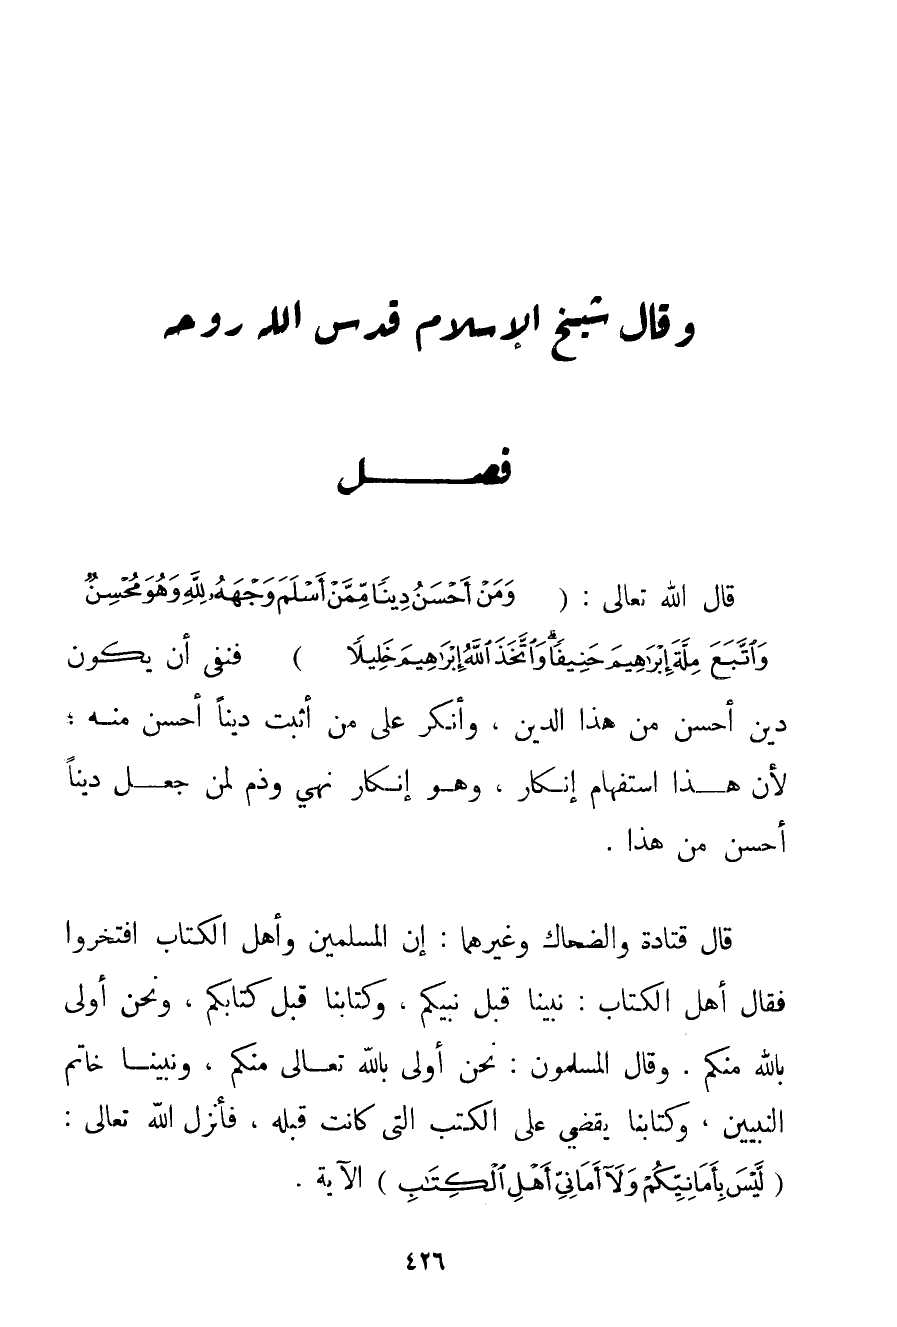 وقال شيخ الإسلام قدس الله روحه
فصـــــــل
قال الله تعالى : ( وَمَنْ أَحْسَنُ دِينًا مِّمَّنْ أَسْلَمَ وَجْهَهُۥ لِلَّهِ وَهُوَ مُحْسِنٌ
وَٱتَّبَعَ مِلَّةَ إِبْرَٰهِيمَ حَنِيفًاۗ وَٱتَّخَذَ ٱللَّهُ إِبْرَٰهِيمَ خَلِيلًا ) فنفى أن يكون
دين أحسن من هذا الدين ، وأنكر على من أثبت ديناً أحسن منه ؛
لأن هـــذا استفهام إنكار ، وهـو إنكار نهي وذم لمن جعـــل ديناً
أحسن من هذا .
قال قتادة والضحاك وغيرها : إن المسلمين وأهل الكتاب افتخروا
فقال أهل الكتاب : نبينا قبل نبيكم ، وكتابنا قبل كتابكم ، ونحن أولى
بالله منكم . وقال المسلمون : نحن أولى بالله تعــالى منكم ، ونبينــا خاتم
النبيين ، وكتابنا يقضي على الكتب التى كانت قبله ، فأنزل الله تعالى :
( لَّيْسَ بِأَمَانِيِّكُمْ وَلَآ أَمَانِىِّ أَهْلِ ٱلْكِتَٰبِ ) الآية .
٤٢٦